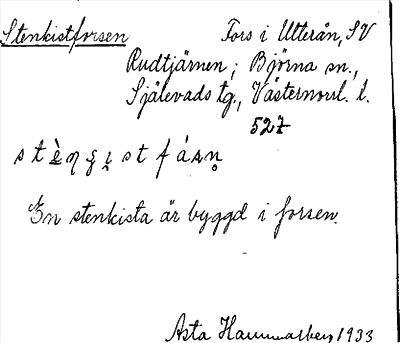 Stenkistforsen Fors i Utterån, SV
Rudtjärnen; Björna sn.,
Själevads tg., Västernorrl. l.
527
En stenkista är byggd i forsen.
Asta Hammarberg 1933